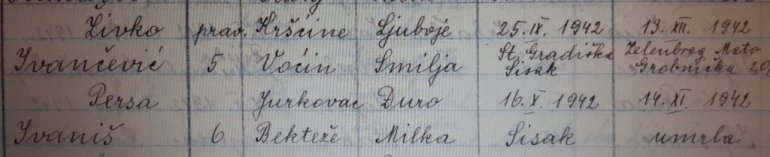 Živko prav. Kršćine Ljuboje 25. IX. 1942 13. XII. 1942
Ivančević 5 Voćin Smilja St. Gradiška Sisak Zelenbreg Mato Grobnička 20,
Persa Jurkovac Đuro 16. X. 1942 14. XI. 1942
Ivaniš 6 Bekteže Milka Sisak umrla